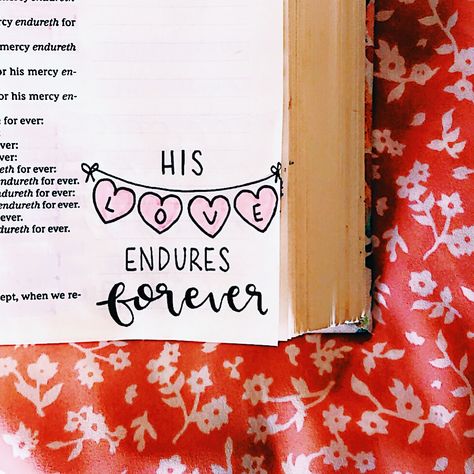 rcy endureth for
mercy endureth
or his mercy en-
or his mercy en-
for ever:
ver:
ver:
eth for ever:
ndureth for ever.
dureth for ever:
endureth for ever.
ever.
dureth for ever.
ept, when we re-
HIS
LOVE
ENDURES
forever